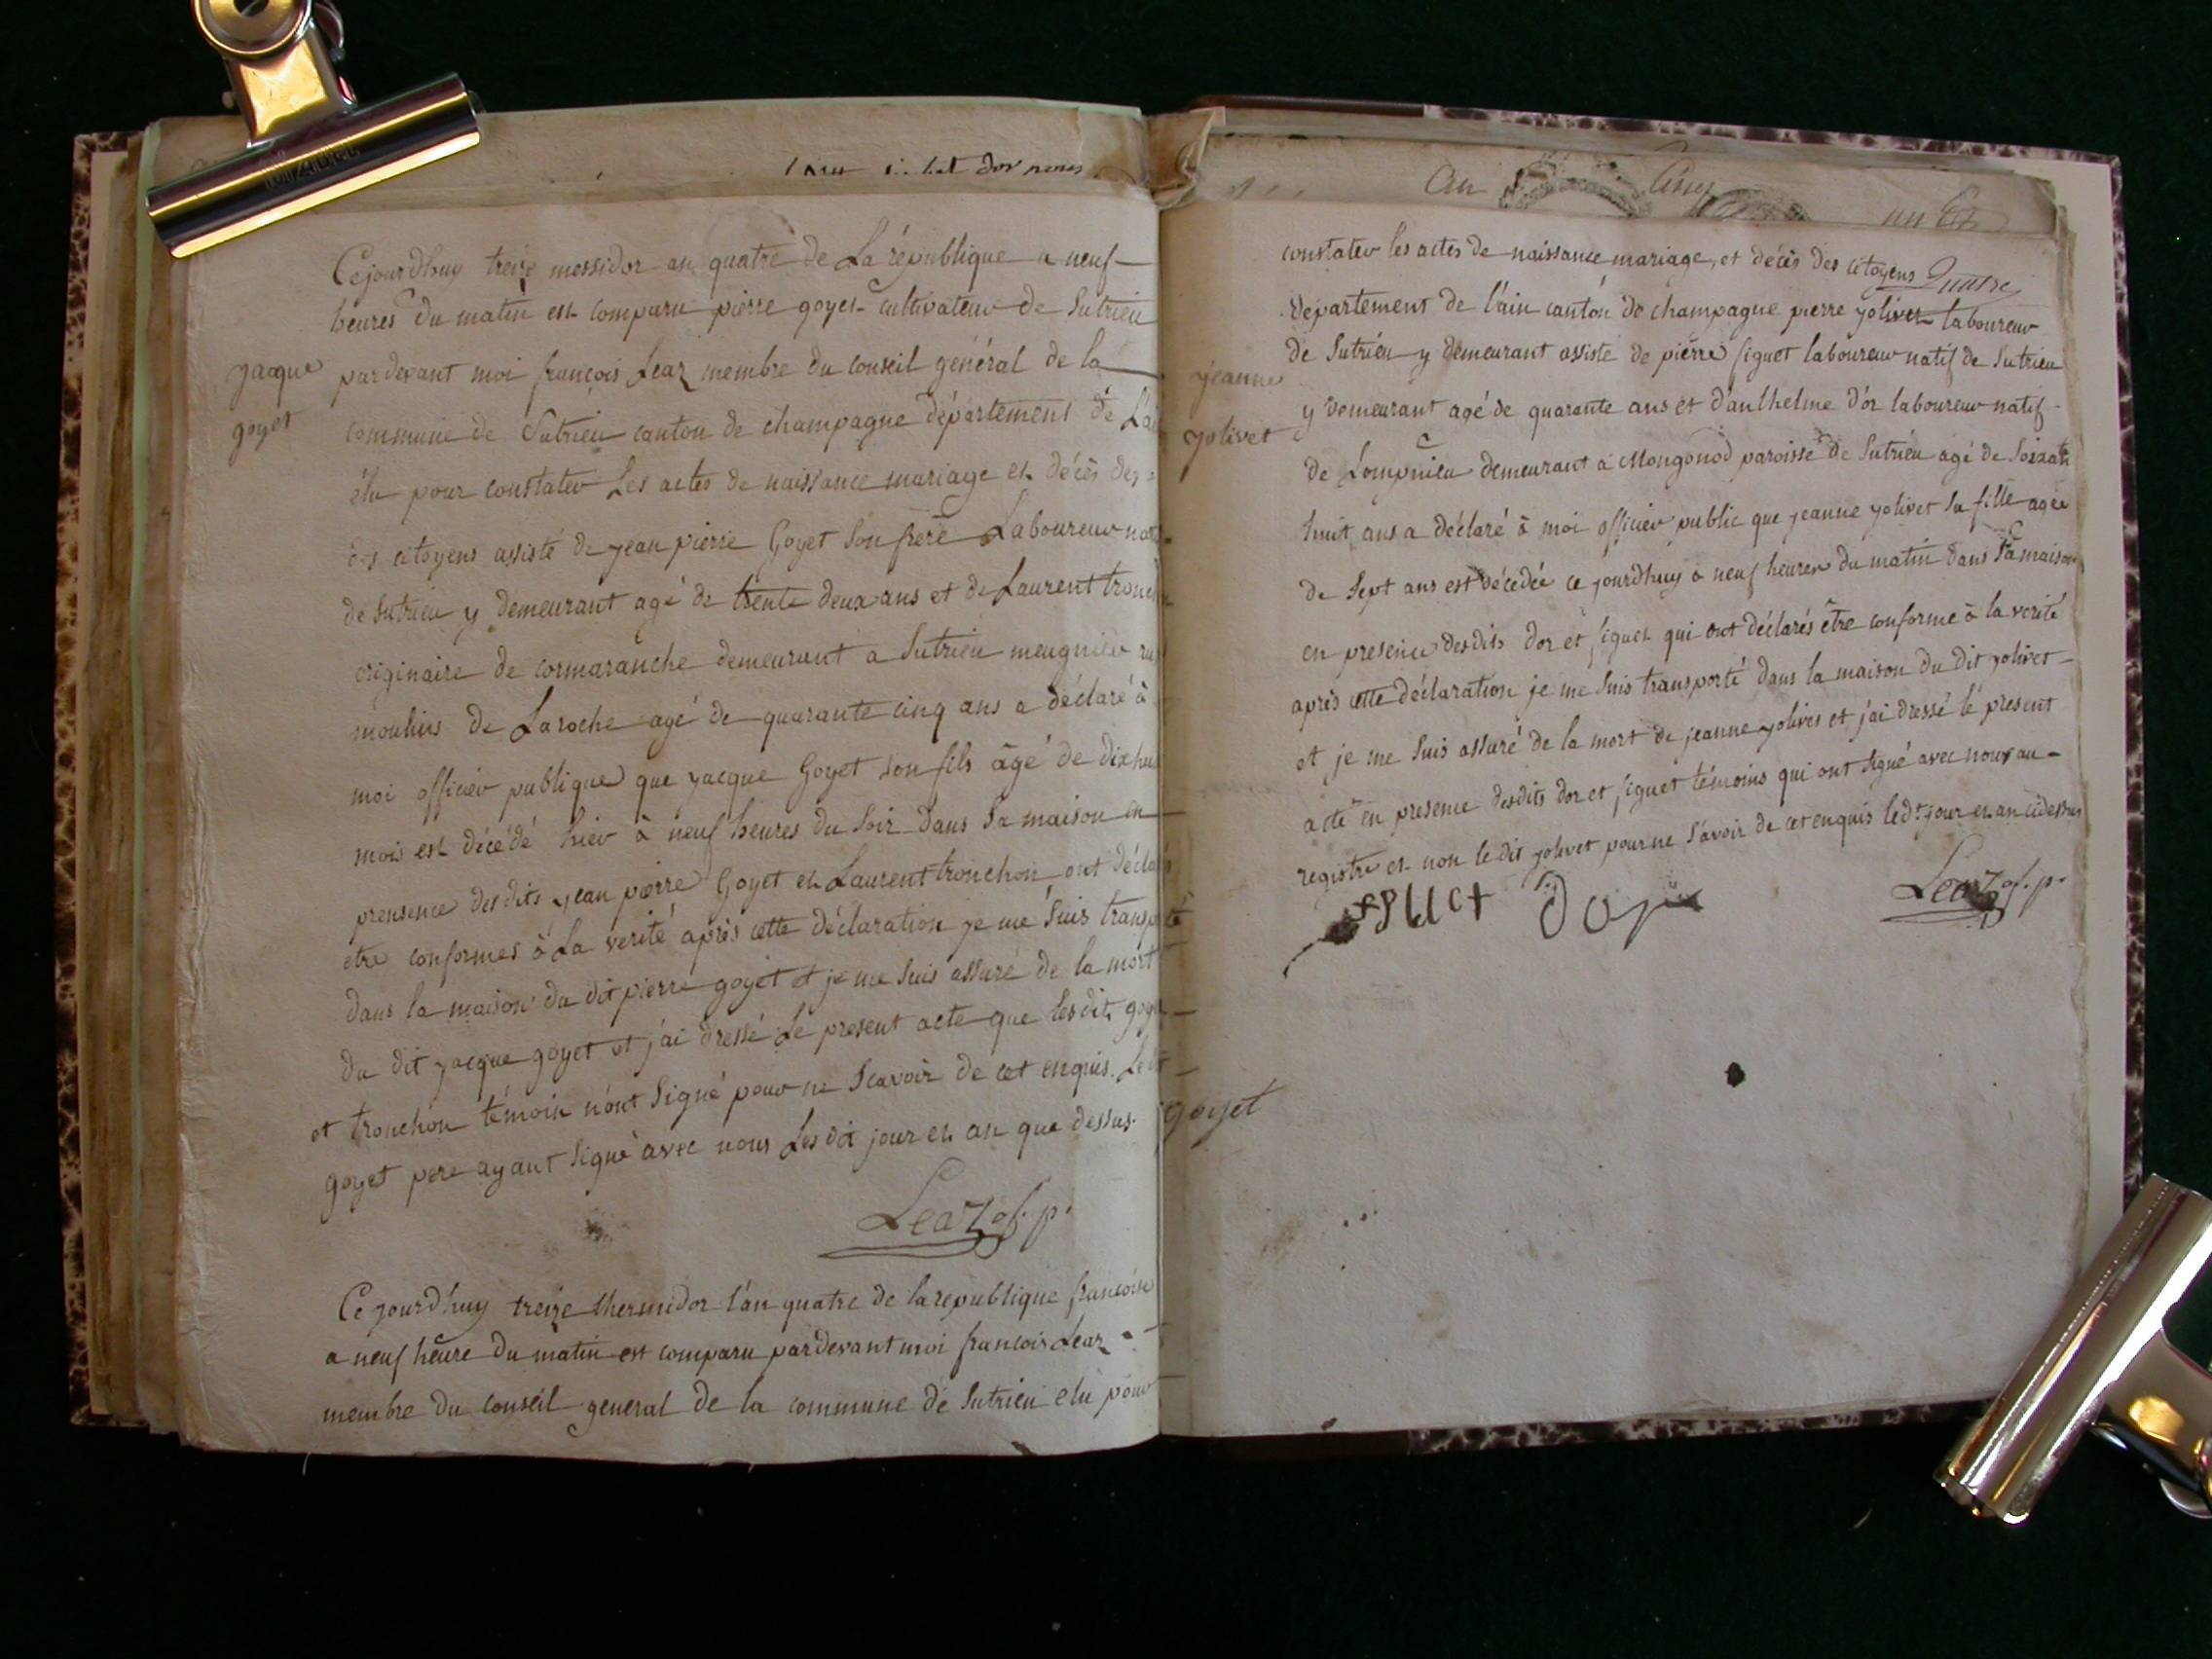 Cejourdhuy treize messidor an quatre de La république a neuf
heures du matin est comparu pierre goyet cultivateur de Sutrieu
jacque
goyet
pardevant moi françois Lear membre du conseil général de la
commune de Sutrieu canton de champagne département de L'ai
élu pour constater Les actes de naissance mariage et décès des
des citoyens assisté de jean pierre Goyet Son frere Laboureur nat
de Sutrieu y demeurant agé de trente deux ans et de Laurent tronch
originaire de cormaranche demeurant a Sutrieu meugnier
moulins de Laroche agé de quarante cinq ans a déclaré à
moi officier publique que jacque Goyet son fils âgé de dixhui
mois est décédé hier à neuf heures du Soir dans Sa maison en
prensence desdits jean pierre Goyet et Laurent tronchon ont déclar
etre conformes à La verité après cette déclaration je me Suis transporté
dans la maison du dit pierre goyet et je me suis assuré de la mort
du dit jacque goyet et j'ai dressé Le present acte que lesdits goyet
et tronchon témoin n'ont Signé pour ne Scavoir de cet enquis. Le dit
goyet pere ayant signé avec nous Lesdit jour et an que dessus.
goyet
Lear of. p.
Ce jourd'huy treize thermidor l'an quatre de la republique francoise
a neuf heure du matin est comparu pardevant moi francois Lear
membre du conseil general de la commune de Sutrieu elu pour
constater les actes de naissance mariage, et décès des citoyens
departement de l'ain canton de champagne pierre jolivet laboureur
de Sutrieu y demeurant assisté de pierre figuet laboureur natif de Sutrieu
jeanne
jolivet
y demeurant agé de quarante ans et d'anthelme d'or laboureur natif
de Lompnieu demeurant a Mongonod paroisse de Sutrieu agé de Soizante
huit ans a déclaré à moi officier public que jeanne jolivet Sa fille agée
de Sept ans est décédée ce jourdhuy a neuf heures du matin dans Sa maison
en presence desdits dor et figuet qui ont déclarés être conforme à la verité
après cette déclaration je me Suis transporté dans la maison du dit jolivet
et je me Suis assuré de la mort de jeanne jolivet et j'ai dressé le present
acte en presence desdits dor et figuet témoins qui ont signé avec nous au
registre et non le dit jolivet pour ne S'avoir de cet enquis led.t jour et an cidessus
Lear of. p.